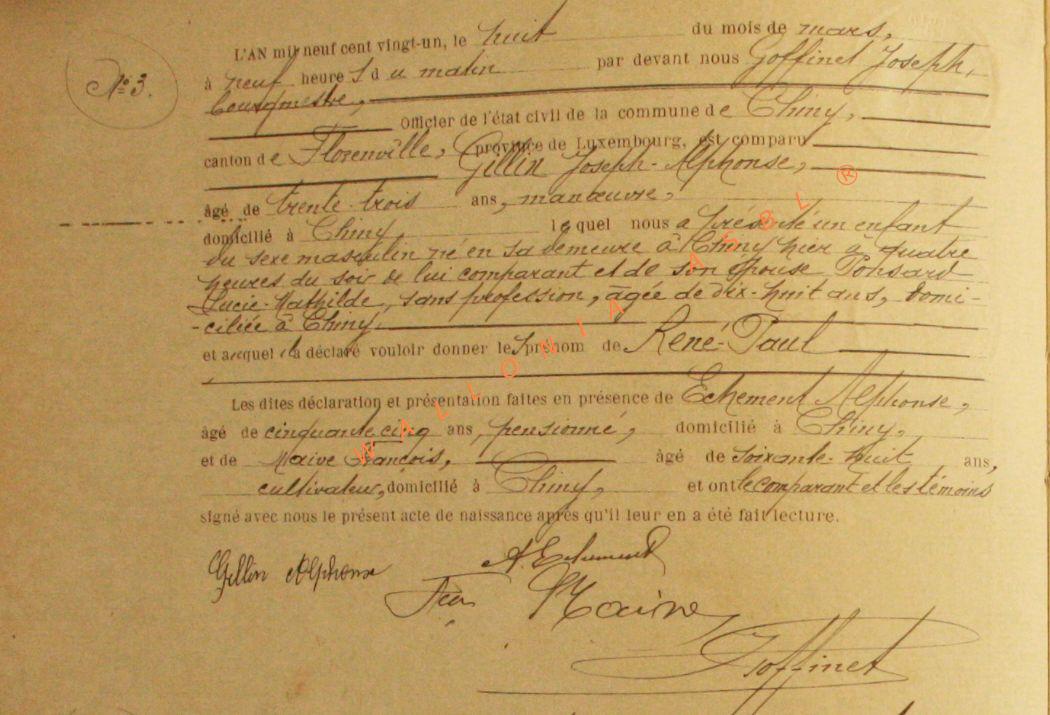 N° 3.
L'AN mil neuf cent vingt-un, le huit du mois de mars,
à neuf heures du matin par devant nous Goffinet Joseph,
bourgmestre,
Officier de l'état civil de la commune de Chiny,
canton de Florenville, province de Luxembourg, est comparu
Gillin Joseph-Alphonse,
âgé de trente-trois ans, manœuvre,
domicilié à Chiny lequel nous a présenté un enfant
du sexe masculin né en sa demeure à Chiny hier à quatre
heures du soir de lui comparant et de son épouse Ponsard
Lucie-Mathilde, sans profession, âgée de dix-huit ans, domi-
-ciliée à Chiny.
et auquel il a déclaré vouloir donner les prénom de René-Paul
Les dites déclaration et présentation faites en présence de Echement Alphonse,
âgé de cinquante cinq ans, pensionné, domicilié à Chiny,
et de Maive François, âgé de soixante-huit ans,
cultivateur, domicilié à Chiny, et ont le comparant et les témoins
signé avec nous le présent acte de naissance après qu'il leur en a été fait lecture.
Gillin Alphonse A. Echement
Maive
Goffinet
WALLONIA ASBL ®